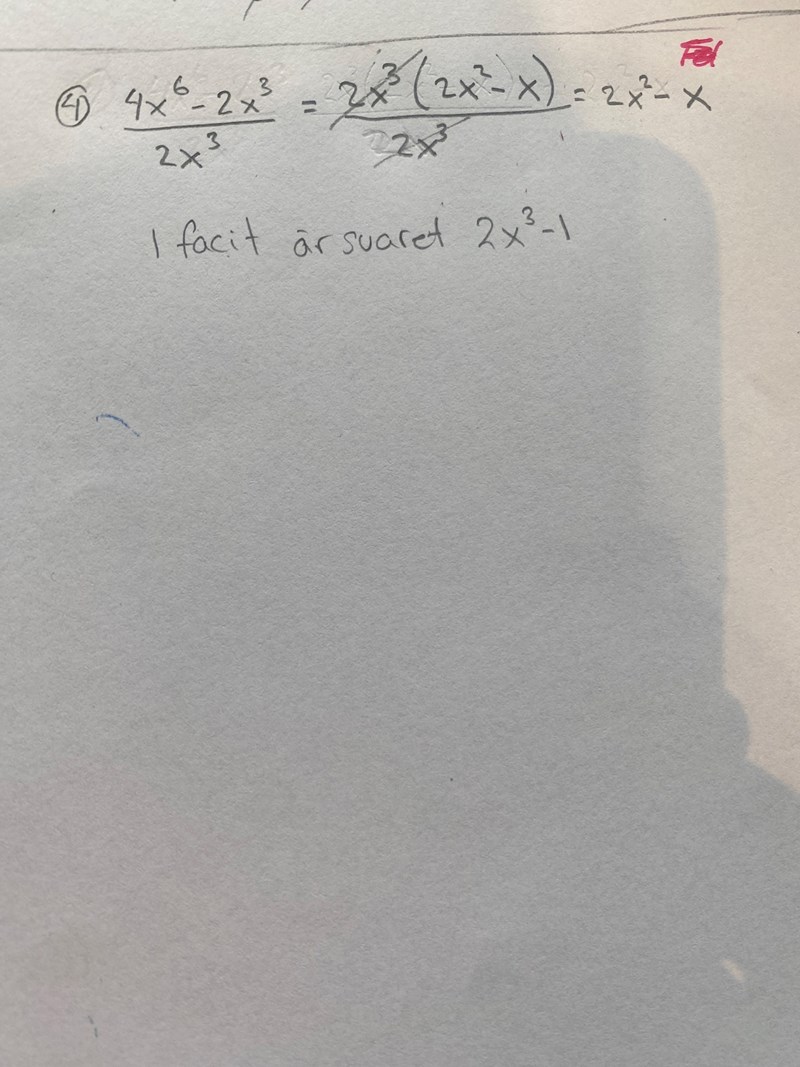 ④ (4x⁶ - 2x³) / 2x³ = 2x³ (2x² - x) / 2x³ = 2x² - x Fel
I facit är svaret 2x³-1